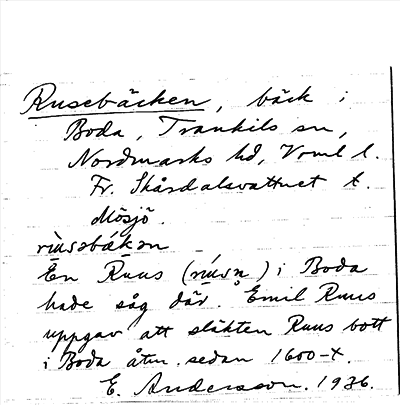 Rusebäcken, bäck i
Boda, Trankils sn,
Nordmarks hd, Vrml l.
Fr. Skårdalsvattnet t.
Mösjö.
rùusəbákən
En Ruus (rúusn) i Boda
hade såg där. Emil Ruus
uppgav att släkten Ruus bott
i Boda åtm. sedan 1600-t.
E. Andersson. 1936.